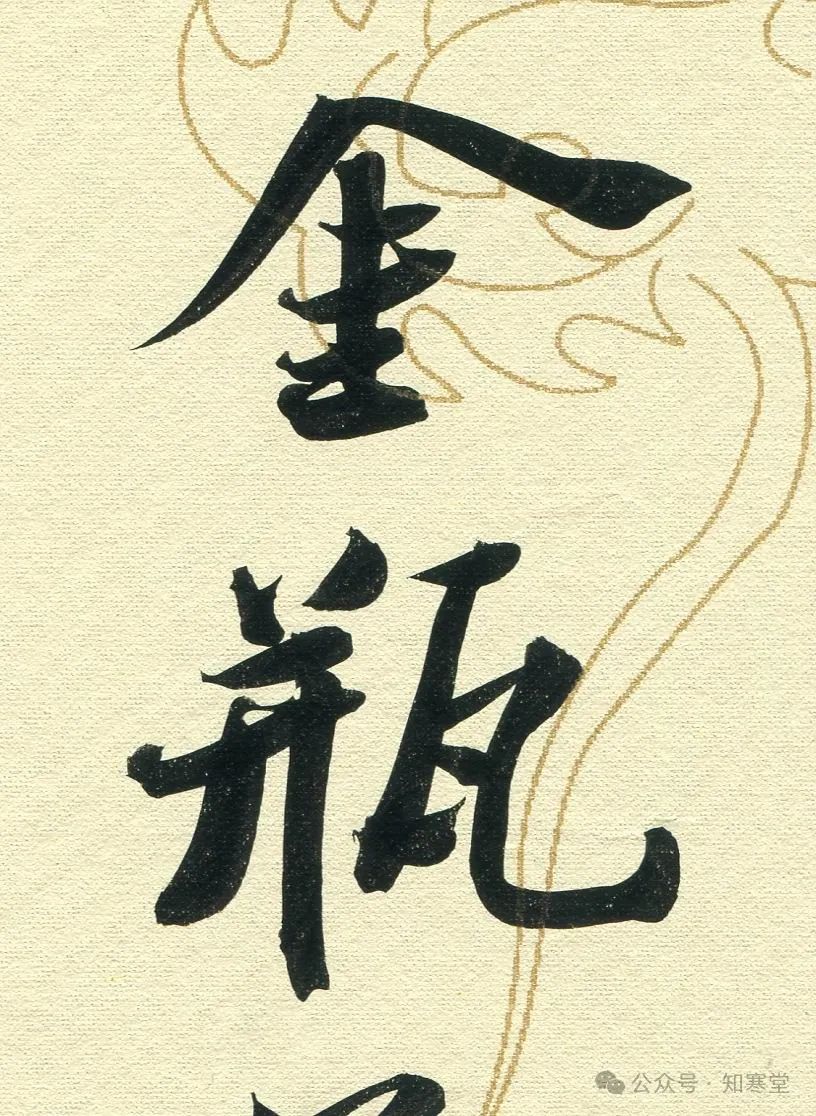 金
瓶
公众号·知寒堂